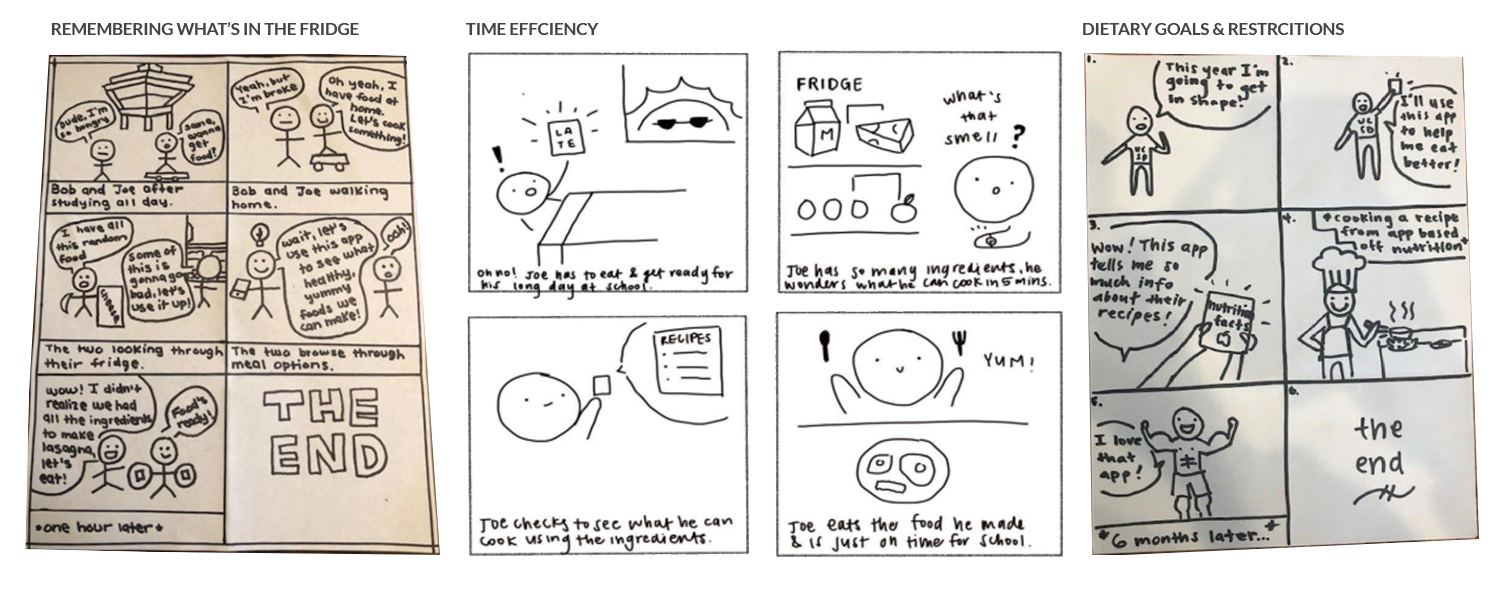 REMEMBERING WHAT'S IN THE FRIDGE
Dude, I'm
so hungry
same,
wanna
get
food?
Bob and Joe after
studying all day.
Yeah, but
I'm broke
Oh yeah, I
have food at
home.
Let's cook
something!
Bob and Joe walking
home.
I have all
this random
food
cheese
Some of
this is
gonna go
bad, let's
use it up!
The two looking through
their fridge.
wait, let's
use this app
to see what
healthy,
yummy
foods we
can make!
Ooh!
The two browse through
meal options.
wow! I didn't
realize we had
all the ingredients
to make
lasagna,
let's
eat!
Food's
ready!
*one hour later*
THE
END
TIME EFFCIENCY
!
LA
TE
oh no! Joe has to eat & get ready for
his long day at school.
FRIDGE
M
what's
that
smell ?
Joe has so many ingredients, he
wonders what he can cook in 5 mins.
RECIPES
Joe checks to see what he can
cook using the ingredients.
YUM!
Joe eats the food he made
& is just on time for school.
DIETARY GOALS & RESTRCITIONS
1.
This year I'm
going to get
in shape!
UC
SD
2.
I'll use
this app
to help
me eat
better!
UC
SD
3.
Wow! This app
tells me so
much info
about their
recipes!
nutrition
facts
4.
*cooking a recipe
from app based
off nutrition*
5.
I love
that
app!
*6 months later...*
6.
the
end